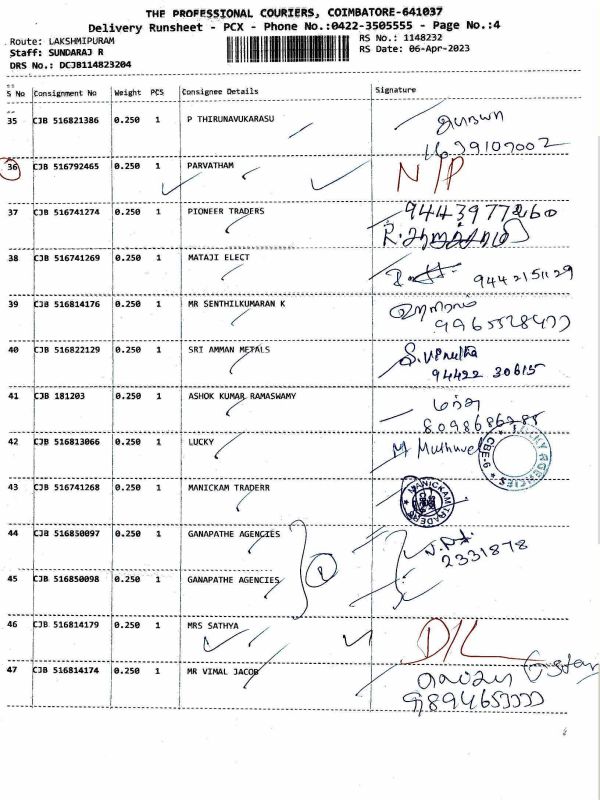 THE PROFESSIONAL COURIERS, COIMBATORE-641037
Delivery Runsheet - PCX - Phone No.:0422-3505555 - Page No.:4
Route: LAKSHMIPURAM RS No.: 1148232
Staff: SUNDARAJ R RS Date: 06-Apr-2023
DRS No.: DCJB114823204
S No Consignment No Weight PCS Consignee Details Signature
35 CJB 516821386 0.250 1 P THIRUNAVUKARASU
36 CJB 516792465 0.250 1 PARVATHAM N/P
37 CJB 516741274 0.250 1 PIONEER TRADERS
38 CJB 516741269 0.250 1 MATAJI ELECT
39 CJB 516814176 0.250 1 MR SENTHILKUMARAN K
40 CJB 516822129 0.250 1 SRI AMMAN METALS
94422 30615
41 CJB 181203 0.250 1 ASHOK KUMAR RAMASWAMY
42 CJB 516813066 0.250 1 LUCKY M Muthuvel LUCKY AGENCIES CBE-6
43 CJB 516741268 0.250 1 MANICKAM TRADERR MANICKAM TRADERS
44 CJB 516850097 0.250 1 GANAPATHE AGENCIES
2331878
45 CJB 516850098 0.250 1 GANAPATHE AGENCIES
46 CJB 516814179 0.250 1 MRS SATHYA D/L
47 CJB 516814174 0.250 1 MR VIMAL JACOB